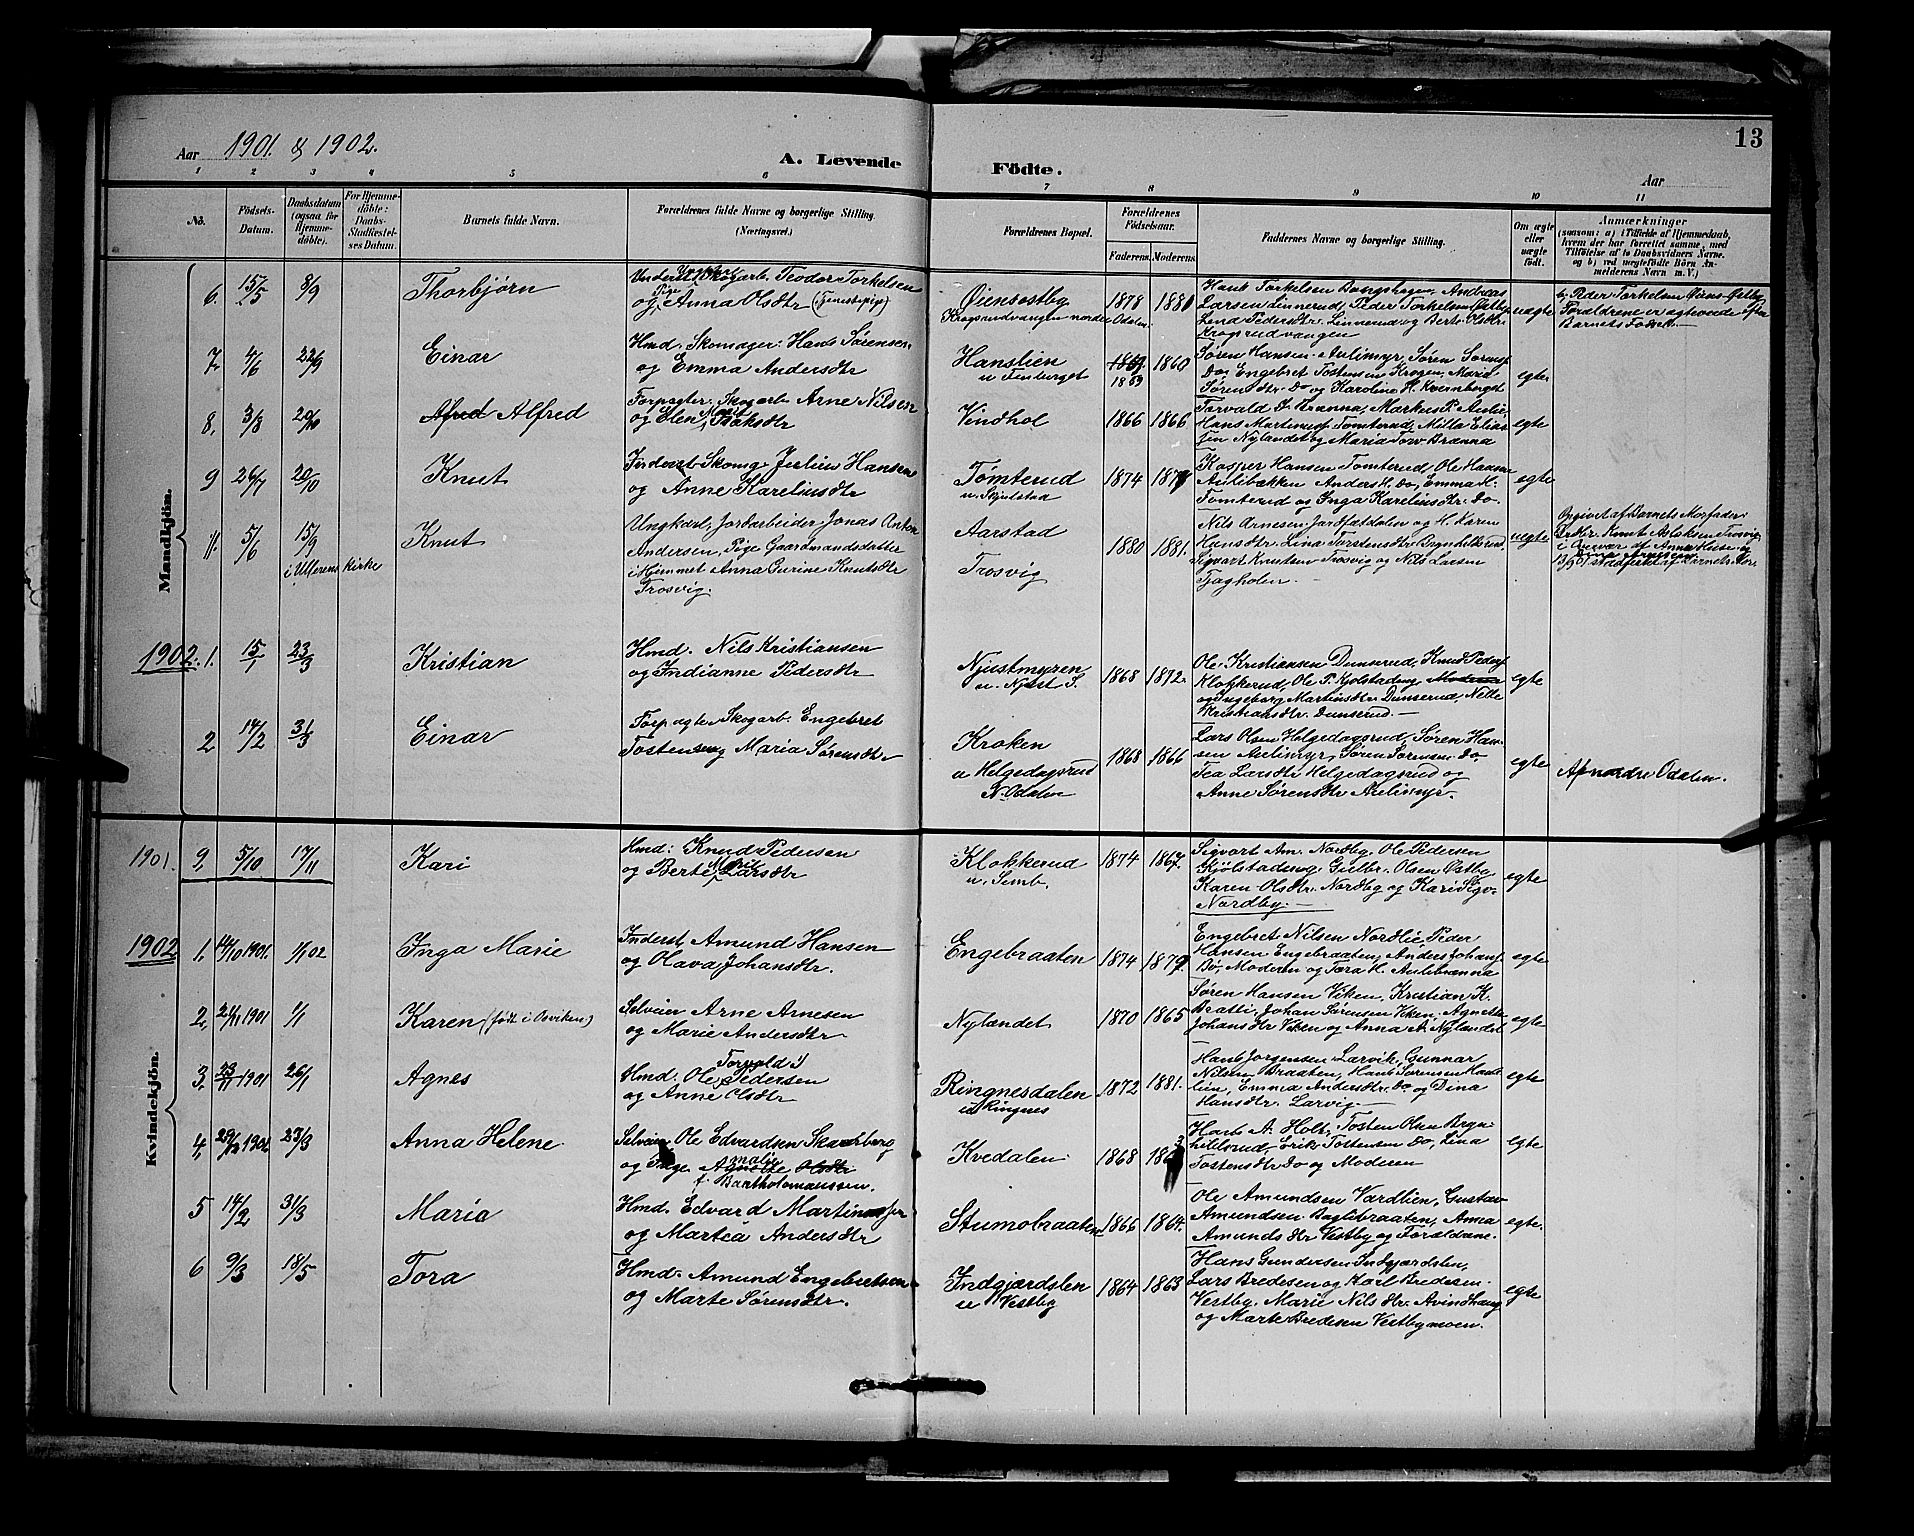 Aar 1901. & 1902.
A. Levende
Födte.
Aar
13
1 2 3 4 5 6 7 8 9 10 11
No.
Födsels-
Datum.
Daabsdatum
(ogsaa for
Hjemme-
döbte).
For Hjemme-
döbte:
Daabs-
Stadfæstel-
ses Datum.
Barnets fulde Navn.
Forældrenes fulde Navne og borgerlige Stilling.
(Næringsvei.)
Forældrenes Bopæl.
Forældrenes
Födselsaar.
Faderens. Moderens.
Faddernes Navne og borgerlige Stilling.
Om ægte
eller
uægte
födt.
Anmærkninger
(saasom: a) i Tilfælde af Hjemmedaab,
hvem der har forrettet samme, med
Tilföielse af to Daabsvidners Navne.
og b) ved uægtefödte Börn An-
melderens Navn m. V.)
Mandkjön.
6. 15/5 8/9 Thorbjörn
Skogarb. Teodor Torkelsen
Pige
og Anna Olsdtr (Tjenestepige)
Øiensostby
Krogsrudvangen nordre Odalen.
1878 1881
Hans Torkelsen Andreas
Larsen Linnerud, Peder Torkelsen Østby
Lena Pedersdtr. Linnerud og Berte Olsdtr
Krogsrudvangen
uegte
b, Peder Torkelsen
Forældrene er egteviede efter
Barnets Födsel.
7. 4/6 22/9 Einar
Hmd. Skomager: Hans Sørensen
og Emma Andersdtr
Hanslien
u
1869 1860
1863
Søren Hansen Aulimyr, Søren Sorensen
Do, Engebret Tostensen Krogen, Maria
Sørensdtr. Do og Karoline H. Kvernberget
egte
8. 3/8 20/10 Afred Alfred
Forpagter: Skogarb. Arne Nilsen
og Elen Marit Isaksdtr
Vindhol
1866 1866
Torvald J. Brænna, Markus P. Aulie,
Hans Martinusf. Tomterud, Milla Elias
sen Nylandet og Maria Torv Brænna
egte
9 26/7 20/10 Knut
Inderst Skomg Julius Hansen
og Anne Kareliusdtr
Tømterud
u. Skjolstad
1874
Kasper Hansen Tomterud, Ole Hansen
Aulibakken Anders H. Do, Emma H.
Tomterud og Inga Kareliusdtr. Do.
egte
11. 5/6 15/9 i Ullerens kirke Knut
Ungkarl, Jordarbeider Jonas Anton
Andersen, Pige Gaardmandsdatter
i Hjemmet Anna Gurine Knutsdtr
Trosvig.
Aarstad
Trosvig
1880 1881.
Nils Arnesen og H. Karen
Hansdtr. Lina Torstensdtr. Brynhildsrud,
Sigvart Knutsen Trosvig og Nils Larsen
Tjagholen
uegte
Opgivet af Barnets Morfader
Knut Aslaksen Trosvig
i Nærvær af Anna Huse og
13/9 01 stadfæstet af Barnets Mor.
1902. 1. 15/1 23/3 Kristian
Hmd. Nils Kristiansen
og Indianne Pedersdtr
Njustmyren
u. Njust S.
1868 1872.
Ole Kristiansen Dunserud, Knud Pedersf
Klokkerud, Ole P. Kjolstadeng, Moderen
og Ingeborg Martinsdtr. Dunserud, Nelle
Kristiansdtr. Dunserud.
egte
2 14/2 31/3 Einar
Forpagter Skogarb. Engebret
Tostensen og Maria Sørensdtr
Kroken
u Helgedagsrud
N. Odalen
1868 1866
Lars Olsen Helgedagsrud, Søren Han-
sen Aulimyr, Søren Sorensen do,
Tea Larsdtr Helgedagsrud og
Anne Sørensdtr Aulimyr.
egte
Af nordre Odalen.
Kvindekjön.
1901. 9. 5/10 17/11 Kari
Hmd: Knud Pedersen
og Berte Marit Larsdtr
Klokkerud
u. Semb.
1874 1867.
Sigvart Am. Nordby, Ole Pedersen
Kjölstadeng, Gulbr. Olsen Østby
Karen Olsdtr. Nordby og Kari Sigv.
Nordby.
egte
1902 1. 14/10 1901. 1/1 02 Inga Marie
Inderst Amund Hansen
og Olava Johansdtr.
Engebraaten
1874 1879.
Engebret Nilsen Nordlie, Peder
Hansen Engebraaten, Anders Johansf
Bø, Moderen og Tora H. Aulibrænna
egte
2. 21/11 1901 1/1 Karen (født i Osviken)
Selveier Arne Arnesen
og Marie Andersdtr
Nylandet
1870 1865
Søren Hansen Viken, Kristian K.
Braatli, Johan Sørensen Viken, Agnethe
Johansdtr Viken og Anna A. Nylandet
egte
3. 23/11 1901 26/1 Agnes
Torvald
Hmd. Ole Pedersen
og Anne Olsdtr
Ringnesdalen
u Ringnes
1872 1881.
Hans Jorgensen Larvik, Gunnar
Nilsen Braaten, Hans Sørensen Hans
lien, Emma Andersdtr. Do og Dina
Hansdtr. Larvig
egte
4. 29/12 1901 23/3 Anna Helene
Selveier Ole Edvardsen Skaarberg
og Inge Amalie Olsdtr
f. Bartholomaussen.
Kvedalen
1868
Hans A. Holt, Tosten Olsen Bryn
hildsrud, Erik Tostensen Do, Lina
Tostensdtr Do og Moderen
egte
5 14/2 31/3 Maria
Hmd. Edvard Martinusen
og Martea Andersdtr
Stumobraaten
1866 1864.
Ole Amundsen Vardlien, Gustav
Amundsen Baglibraaten, Anna
Amundsdtr Vestby og Forældrene.
egte.
6 9/3 18/5 Tora
Hmd. Amund Engebretsen
og Marte Sørensdtr.
Indgjærdslen
u Vestby
1864 1863
Hans Gundersen Indgjærdslen,
Lars Bredesen og Karl Bredesen
Vestby. Marie Nilsdtr. Avindhaug
og Marte Bredesen Vestbymoen.
egte